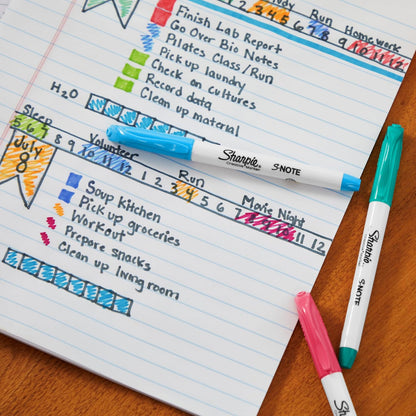 Study Run Homework
3 4 5 6 7 8 9 10 11 12
Finish Lab Report
Go Over Bio Notes
Pilates Class/Run
Pick up laundry
Check on cultures
Record data
Clean up material
H2O
Sleep Volunteer Run Movie Night
5 6 7 8 9 10 11 12 1 2 3 4 5 6 7 8 9 10 11 12
July
8
Soup Kitchen
Pick up groceries
Workout
Prepare snacks
Clean up living room
Sharpie S·NOTE
Sharpie S·NOTE
Sharpie